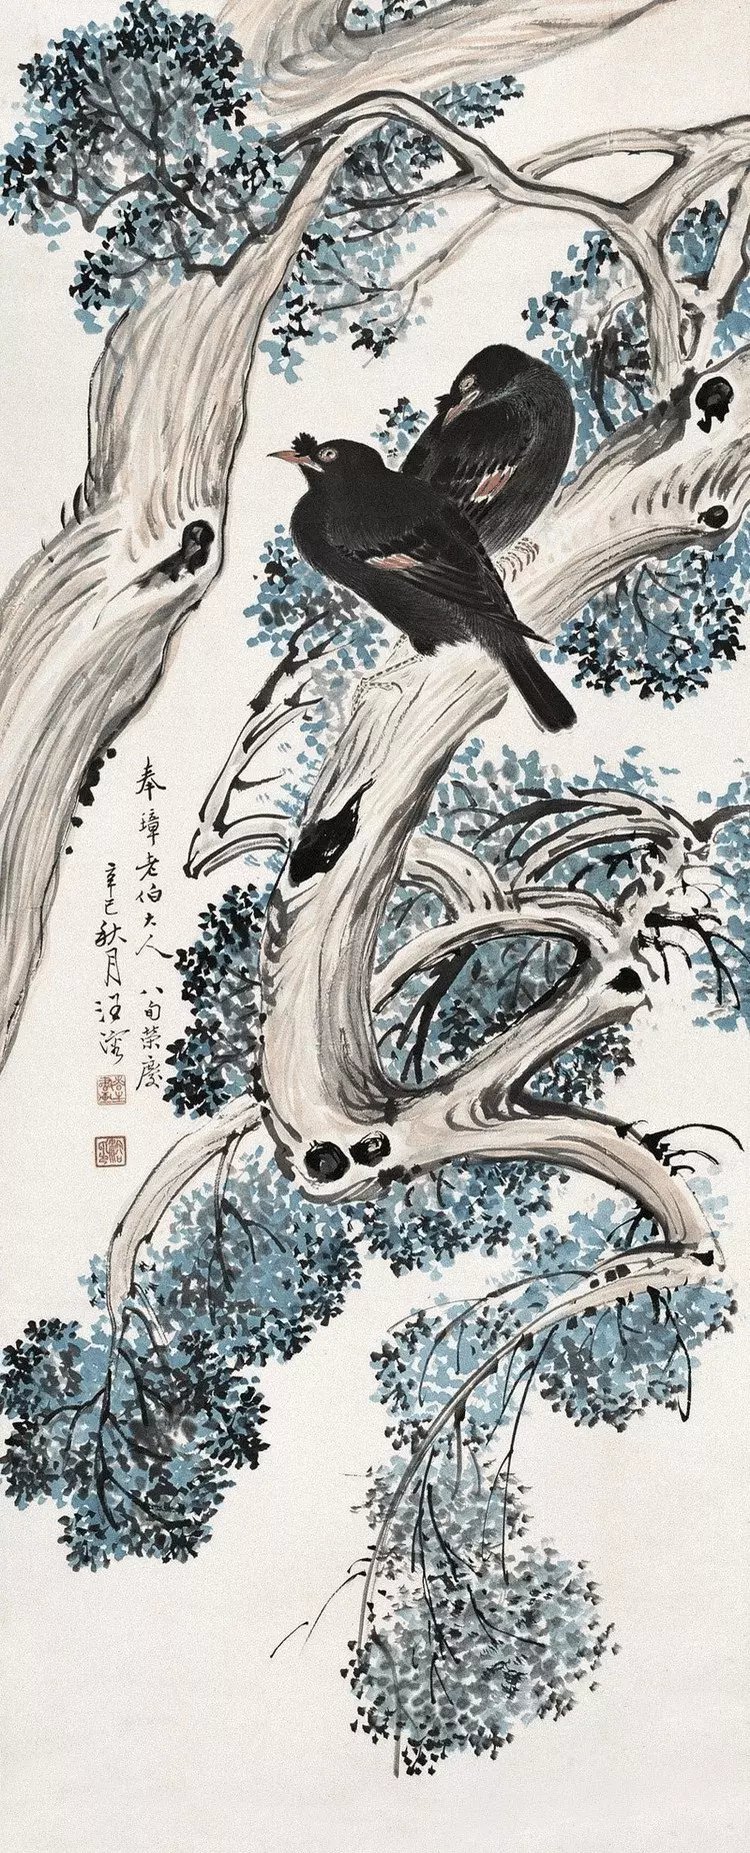 奉璋老伯大人 八旬荣庆
辛巳秋月汪溶